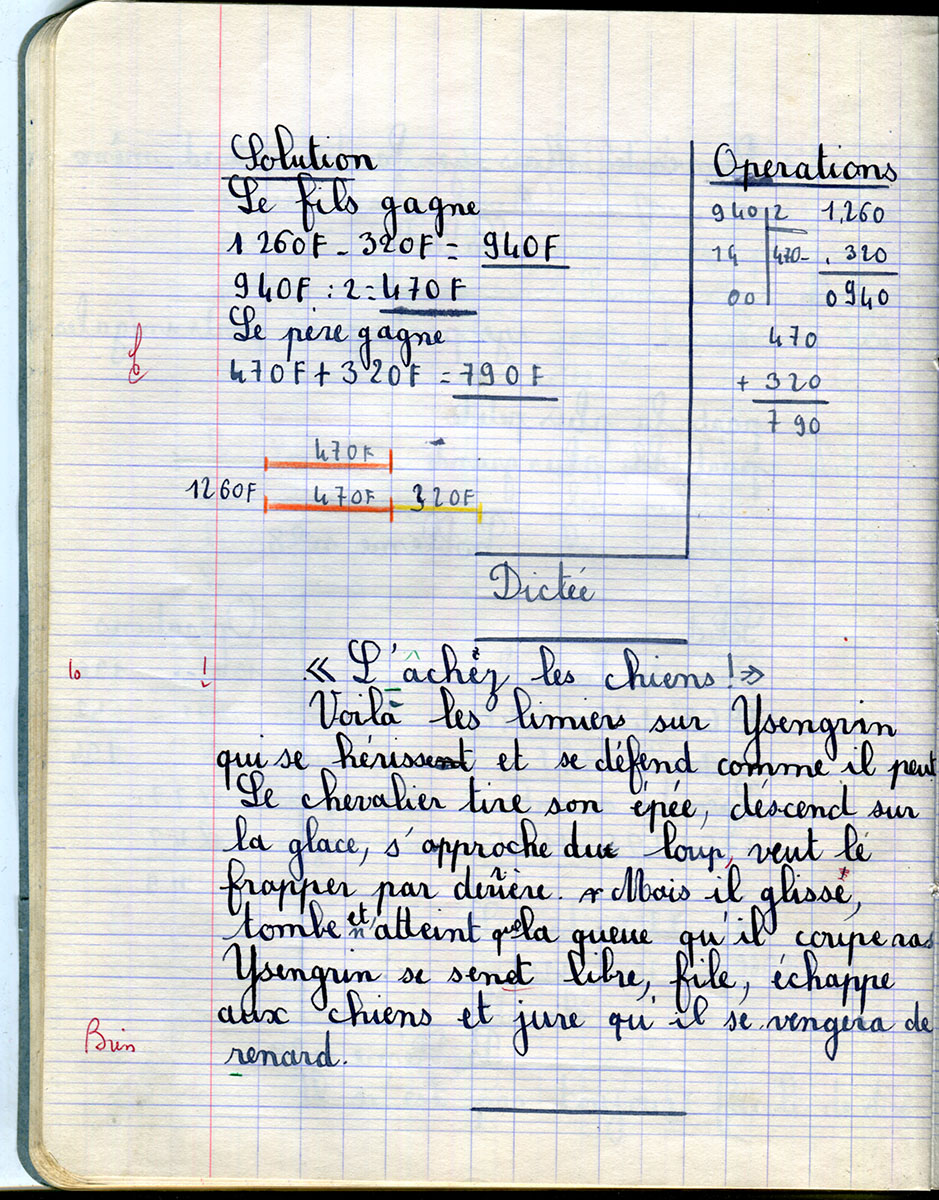 Solution
Le fils gagne
1 260F - 320F = 940F
940F : 2 = 470F
Le père gagne
470F + 320F = 790F
Operations
940 2 1,260
14 470- . 320
00 0940
470
+ 320
790
470F
1260F 470F 320F
Dictée
10 !
« L'âchéz les chiens! »
Voilà les limiers sur Ysengrin
qui se hérissent et se défend comme il peut
Le chevalier tire son épée, déscend sur
la glace, s'approche du loup, veut lé
frapper par derrière. Mais il glissé,
tombe et n'atteint que la queue qu'il coupe ras
Ysengrin se sent libre, file, échappe
aux chiens et jure qu'il se vengera de
renard.
Bien